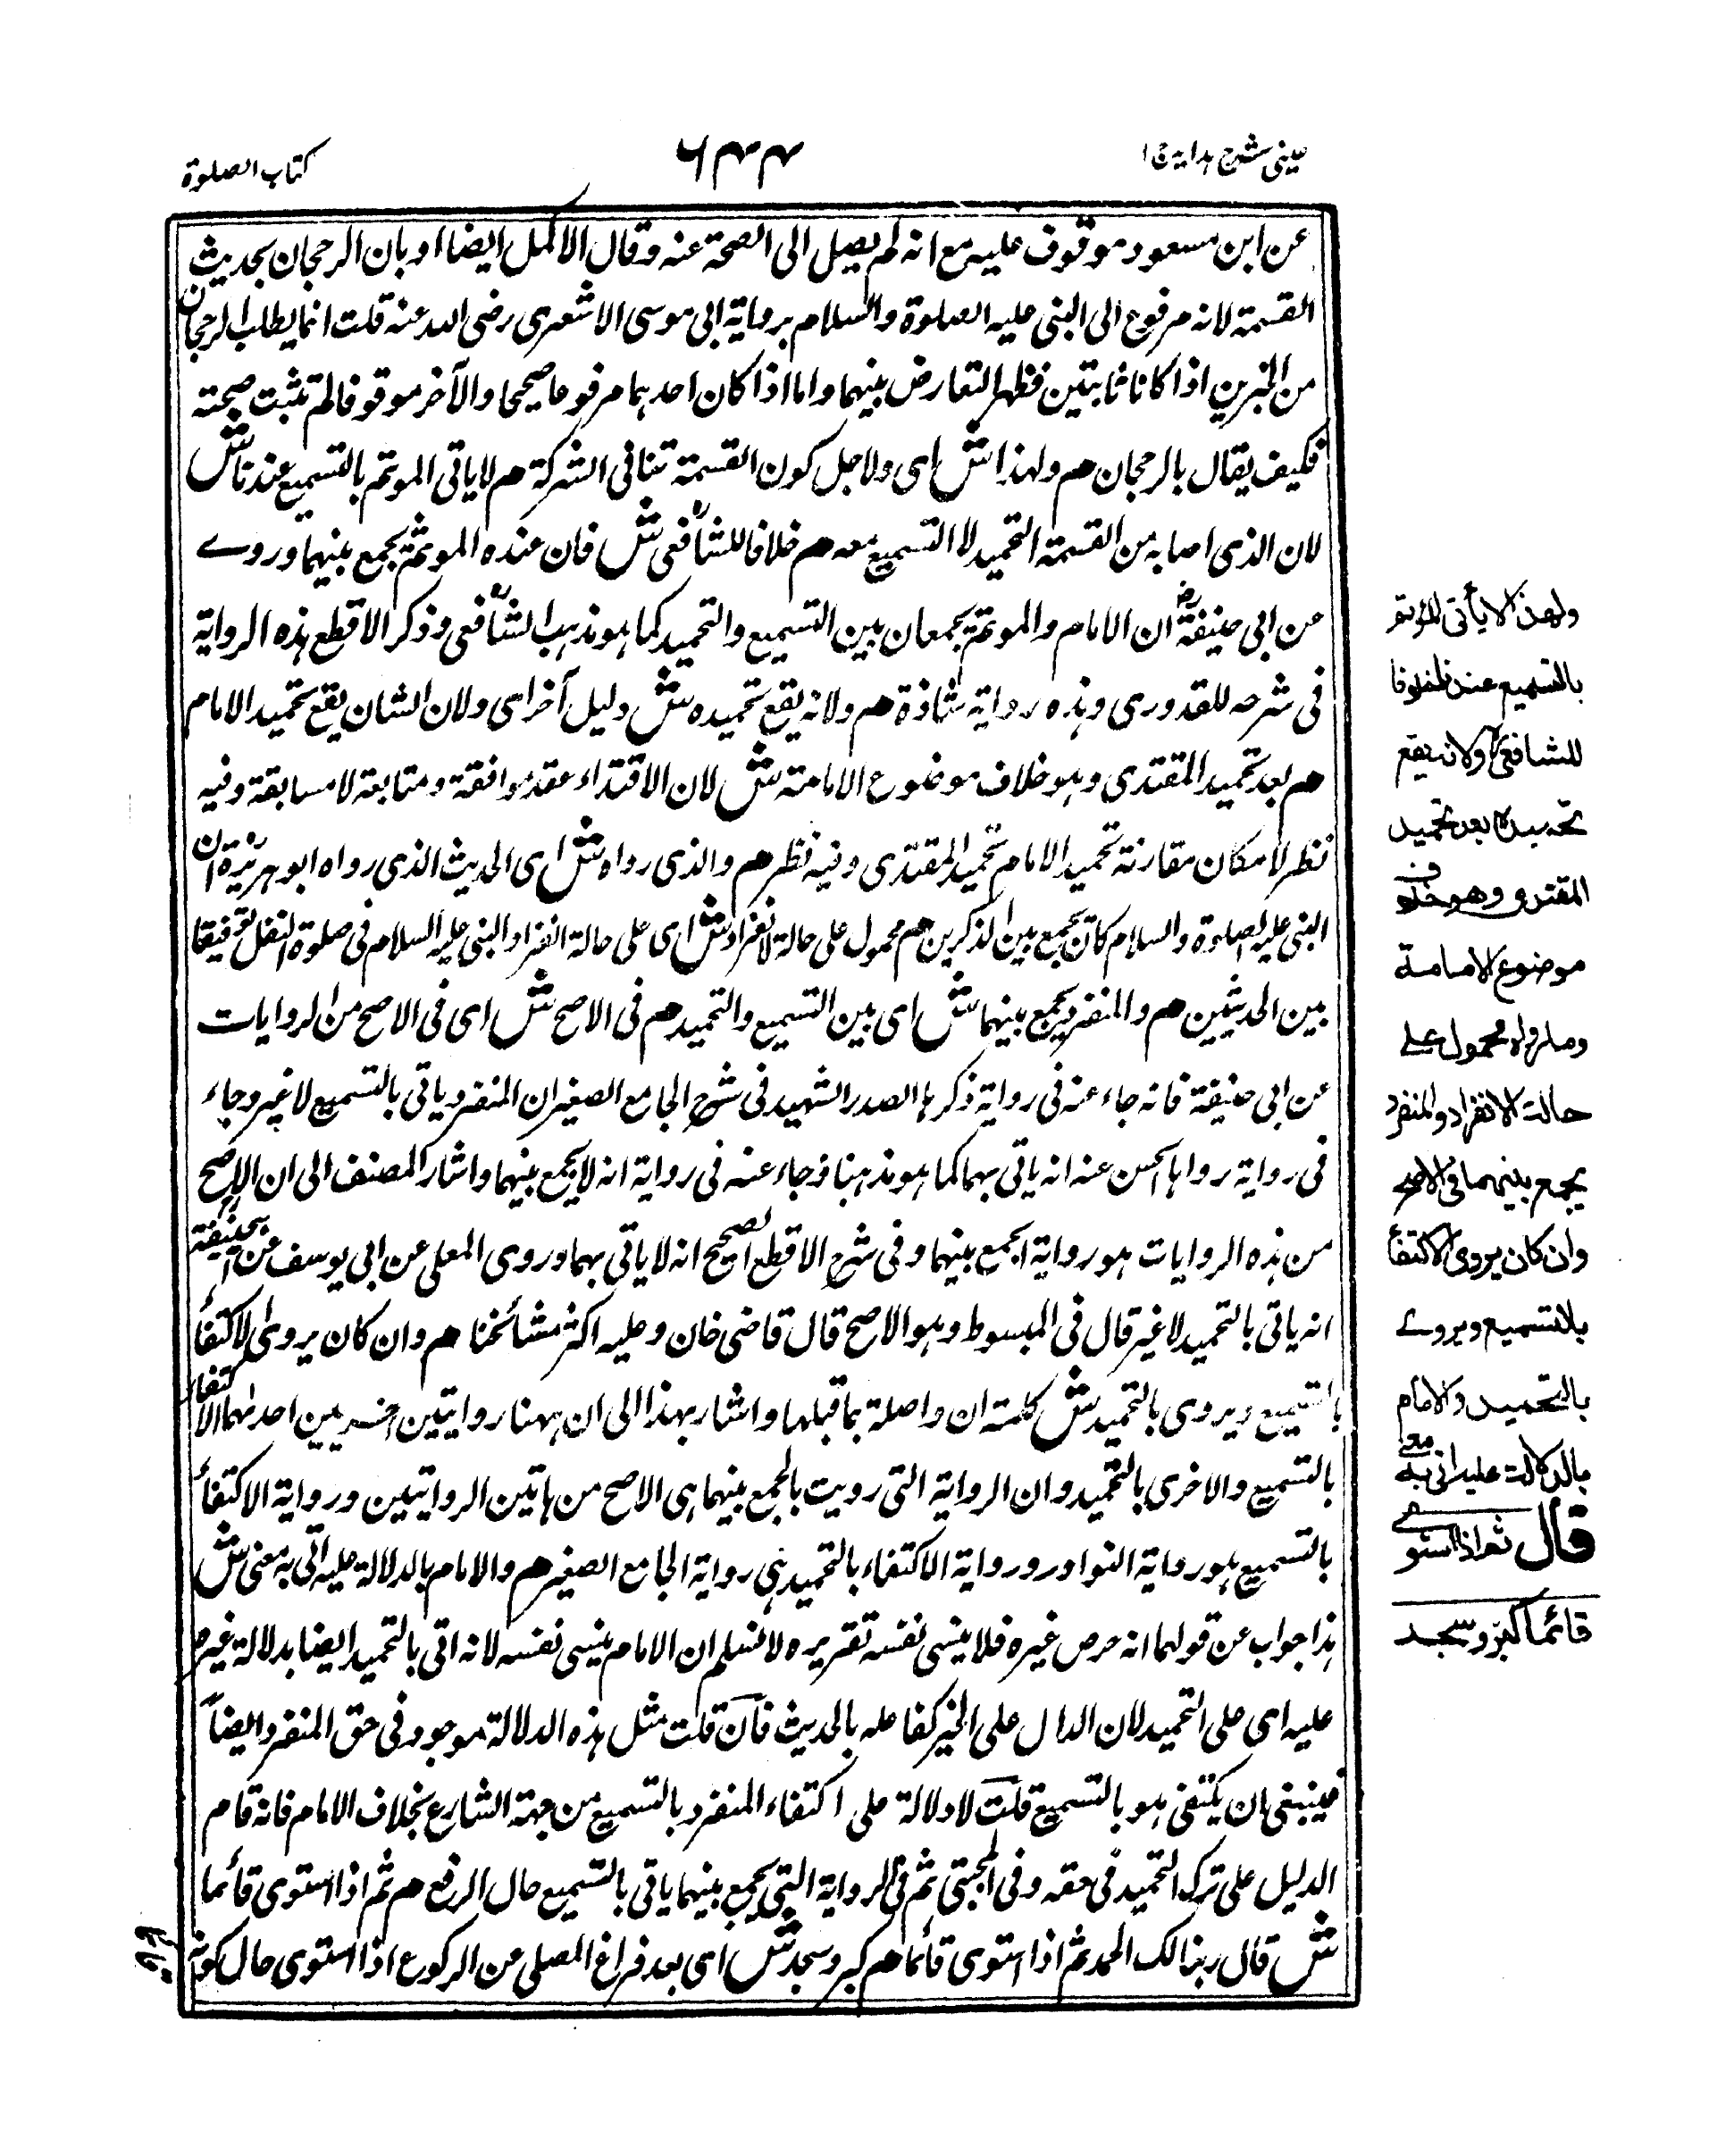 عینی شرح ہدایہ ج ۱
۶۴۴
کتاب الصلوة
عن ابن مسعود موقوف عليه مع انه لم يصل الى الصحة عنه وقال الاكمل ايضا او بان الرجحان بحديث
القسمة لانه مرفوع الى النبى عليه الصلوة والسلام برواية ابى موسى الاشعرى رضى الله عنه قلت انما يطلب الرجحان
من الخبرين اذا كانا ثابتين فظهر التعارض بينهما واما اذا كان احدهما مرفوعا صحيحا والآخر موقوفا لم تثبت صحته
فكيف يقال بالرجحان هم ولهذا ش اى ولاجل كون القسمة تنافى الشركة هم لا ياتى الموتم بالتسميع عندنا ش
لان الذى اصابه من القسمة التحميد لا التسميع معه هم خلافا للشافعى ش فان عنده الموتم يجمع بينهما وروے
عن ابى حنيفة ان الامام والموتم يجمعان بين التسميع والتحميد كما هو مذهب الشافعى وذكر الاقطع هذه الرواية
فى شرحه للقدورى وهذه رواية شاذة هم ولانه يقع تحميده ش دليل آخر اى ولان الشان يقع تحميد الامام
هم بعد تحميد المقتدى وهو خلاف موضوع الامامة ش لان الاقتداء عقد موافقة ومتابعة لا مسابقة وفيه
نظر لامكان مقارنة تحميد الامام تحميد المقتدى وفيه نظر هم والذى رواه ش اى الحديث الذى رواه ابو هريرة ان
النبى عليه الصلوة والسلام كان يجمع بين الذكرين هم محمول على حالة الانفراد ش اى على حالة انفراد النبى عليه السلام فى صلوة النفل توفيقا
بين الحديثين هم والمنفرد يجمع بينهما ش اى بين التسميع والتحميد هم فى الاصح ش اى فى الاصح من الروايات
عن ابى حنيفة فانه جاء عنه فى رواية ذكرها الصدر الشهيد فى شرح الجامع الصغير ان المنفرد ياتى بالتسميع لا غير وجاء
فى رواية رواها الحسن عنه انه ياتى بهما كما هو مذهبنا وجاء عنه فى رواية انه لا يجمع بينهما واشار المصنف الى ان الاصح
من هذه الروايات هو رواية الجمع بينهما وفى شرح الاقطع الصحيح انه لا ياتى بهما وروى المعلى عن ابى يوسف عن ابى حنيفة
انه ياتى بالتحميد لا غير قال فى المبسوط وهو الاصح قال قاضى خان وعليه اكثر مشائخنا هم وان كان يروى الاكتفأ
بالتسميع ويروى بالتحميد ش كلمة ان واصلة بما قبلها واشار بهذا الى ان ههنا روايتين اخريين احدٰهما الاكتفاء
بالتسميع والاخرى بالتحميد وان الرواية التى رويت بالجمع بينهما هى الاصح من هاتين الروايتين ورواية الاكتفأ
بالتسميع هو رواية النوادر ورواية الاكتفاء بالتحميد هى رواية الجامع الصغير هم والامام بالدلالة عليه اتى به معنى ش
هذا جواب عن قولهما انه حرص غيره فلا ينسى نفسه تقريره لا نسلم ان الامام ينسى نفسه لانه اتى بالتحميد ايضا بدلالة غيره
عليه اى على التحميد لان الدال على الخير كفاعله بالحديث فان قلت مثل هذه الدلالة موجود فى حق المنفرد ايضاً
فينبغى ان يكتفى هو بالتسميع قلت لا دلالة على اكتفاء المنفرد بالتسميع من جهة الشارع بخلاف الامام فانه قام
الدليل على ترك التحميد فى حقه وفى المجتبى ثم فى الرواية التى يجمع بينهما ياتى بالتسميع حال الرفع هم ثم اذا استوى قائما
ش قال ربنا لك الحمد ثم اذا استوى قائما هم كبر وسجد ش اى بعد فراغ المصلى عن الركوع اذا استوى حال كونه
ولهذا لا يأتى المؤتم
بالتسميع عندنا خلافا
للشافعى ولانه يقع
تحميده بعد تحميد
المقتدى وهو خلاف
موضوع الامامة
وما رواه محمول على
حالة الانفراد والمنفرد
يجمع بينهما فى الاصح
وان كان يروى الاكتفأ
بالتسميع ويروے
بالتحميد والامام
بالدلالة عليه اتى به معے
قال ثم اذا استوے
قائما كبّر وسجد